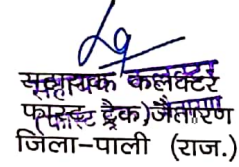 सहायक कलक्टर
(फास्ट ट्रैक) जैतारण
जिला-पाली (राज.)